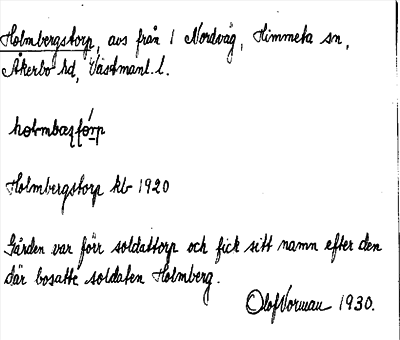 Holmbergstorp, avs från 1 Nordvåg, Himmeta sn,
Åkerbo hd, Västmanl. l.
holmbaʒtórp
Holmbergstorp kb 1920
Gården var förr soldattorp och fick sitt namn efter den
där bosatte soldaten Holmberg.
Olof Norman 1930.